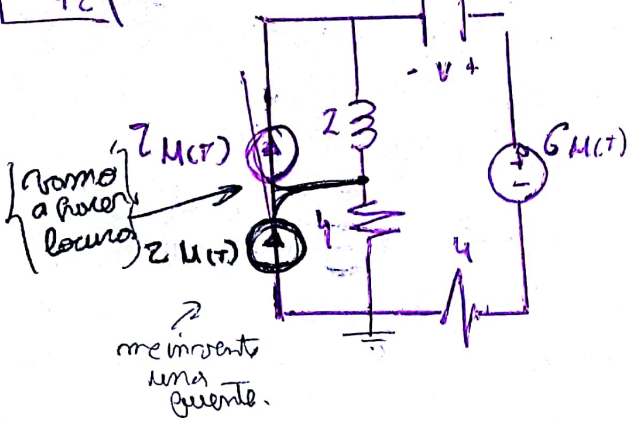 12
- V +
2
2 μ(t)
6 μ(t)
+
-
vamo
a hacer
locura
4
2 μ(t)
4
me invente
una
fuente.